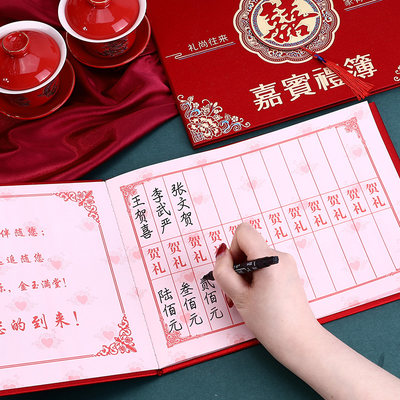 囍
礼尚往来
嘉賓禮簿
伴随您;
逢随您
金玉满堂!
的到来!
王贺喜
李武严
张文贺
贺礼 贺礼 贺礼 贺礼 贺礼 贺礼 贺礼 贺礼
陆佰元
叁佰元
贰佰元